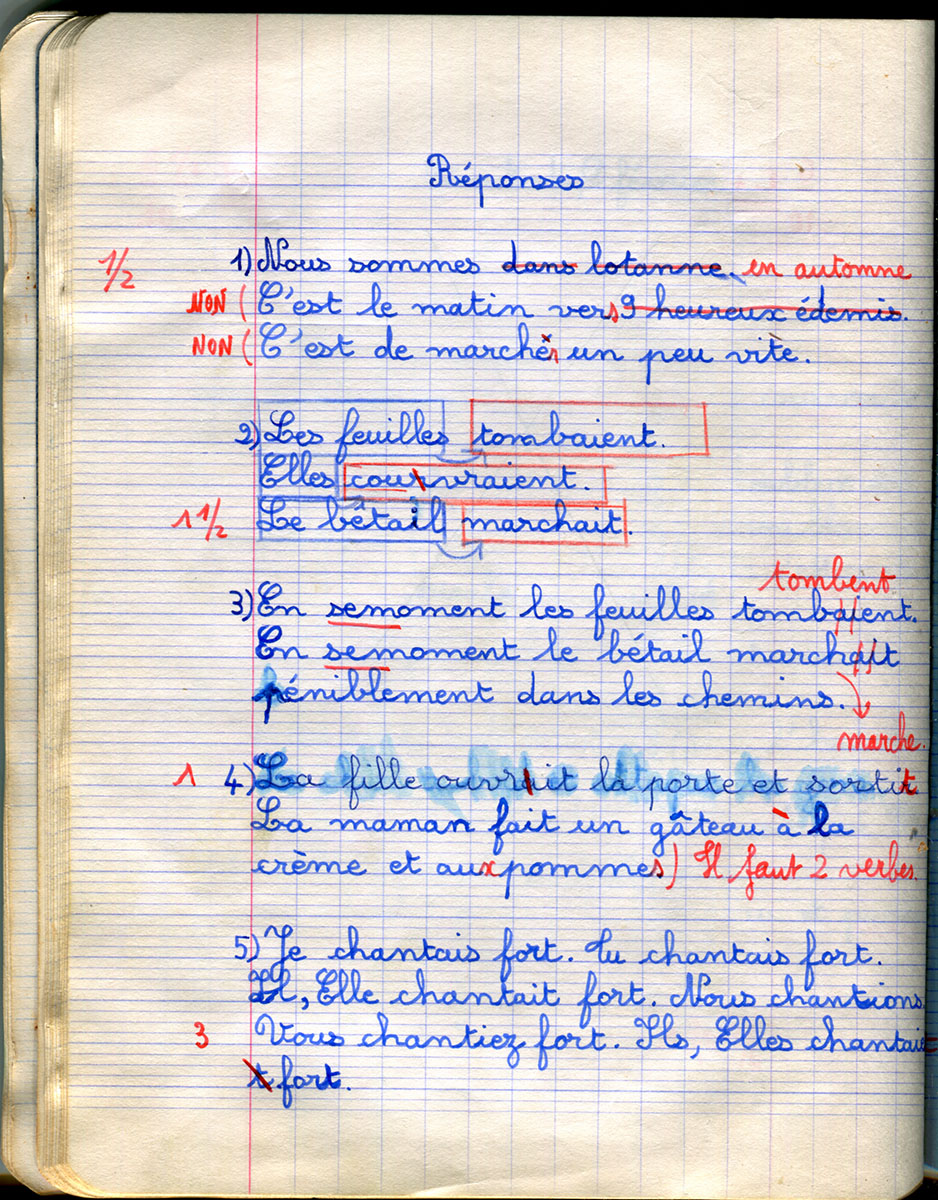 Réponses
1/2 1) Nous sommes dans lotanne. en automne
NON ( C'est le matin vers 9 heureux édemis.
NON ( C'est de marcher un peu vite.
2) Les feuilles tombaient.
Elles couvraient.
1 1/2 Le bétail marchait.
tombent
3) En semoment les feuilles tombaient.
En semoment le bétail marchait
péniblement dans les chemins.
marche.
1 4) La fille ouvrait la porte et sortit
La maman fait un gâteau à la
crème et aux pommes) Il faut 2 verbes.
5) Je chantais fort. Tu chantais fort.
Il, Elle chantait fort. Nous chantions
3 Vous chantiez fort. Ils, Elles chantait
t fort.